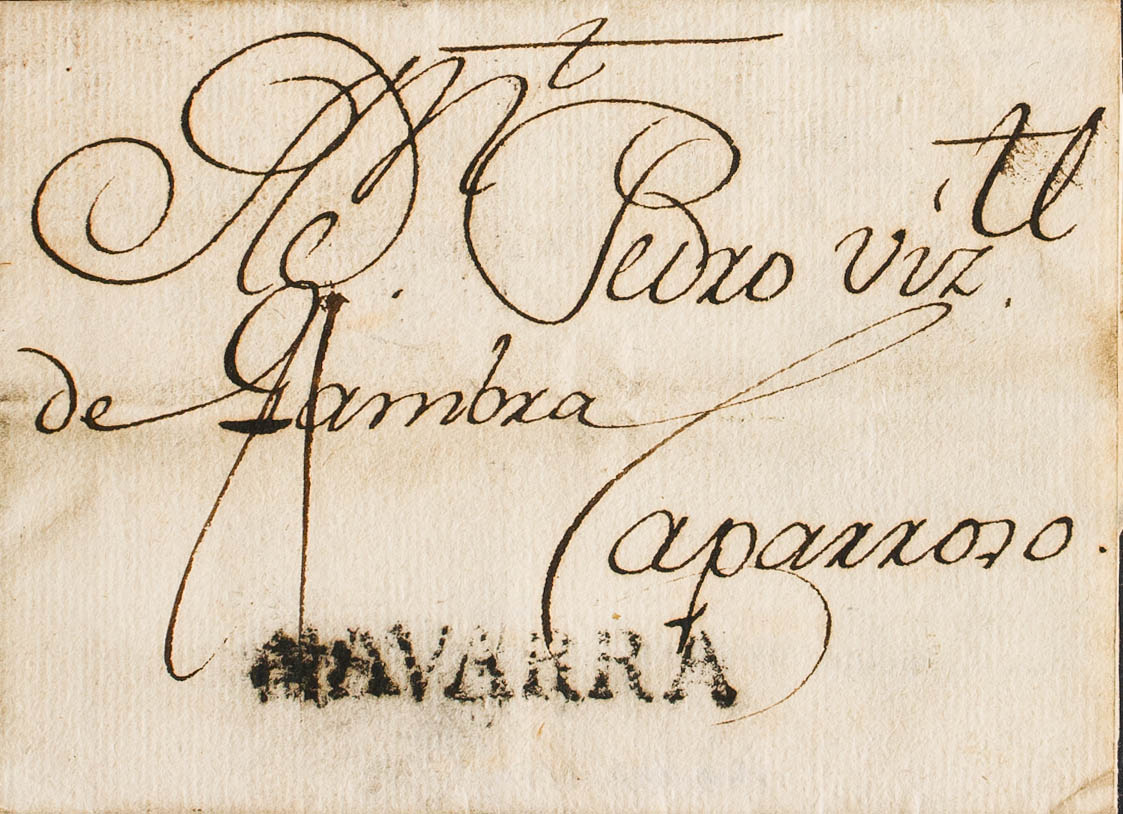 Pedro Viz.te
de Gambra
Caparroso.
NAVARRA